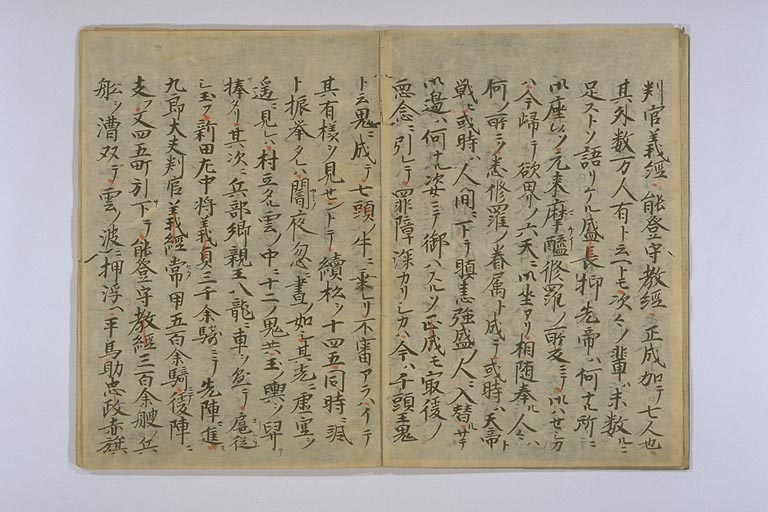 判官義經能登守教經ニ正成加テ七人也
其外數万人有ト云トモ次々ノ輩ハ未數ルニ
足ストソ語リケル盛長抑先帝ハ何ナル所ニ
御座ソ元來摩醯修羅ノ所変ニテ御ハセシカ
ハ今歸テ欲界ノ六天ニ御坐アリ相隨奉ル人々ハ
何ノ所ニソ悉修羅ノ眷属ト成テ或時ハ天帝ト
戰ヒ或時ハ人間ニ下テ瞋恚強盛ノ人ニ入替ルサテ
御邊ハ何ナル姿ニテ御ハスルソ正成モ最後ノ
惡念ニ引レテ罪障深カリシカハ今ハ千頭王鬼
ト云鬼ニ成テ七頭ノ牛ニ乘レリ不審アラハイテ
其有樣ヲ見セントテ續松ヲ十四五同時ニ
ト振挙タレハ闇夜忽ニ晝ノ如シ其光ニ虛空ヲ
遥ニ見レハ村立タル雲ノ中ニ十二ノ鬼共玉ノ輿ヲ舁
捧タリ其次ニ兵部卿親王八龍ニ車ヲ
シ玉フ新田左中將義貞三千余騎ニテ先陣ニ進ミ
九郎大夫判官義經常甲五百余騎後陣ニ
支フ又四五町引下テ能登守教經三百余艘ノ兵
舩ヲ漕双テ雲ノ波ニ押浮ヘ平馬助忠政赤旗